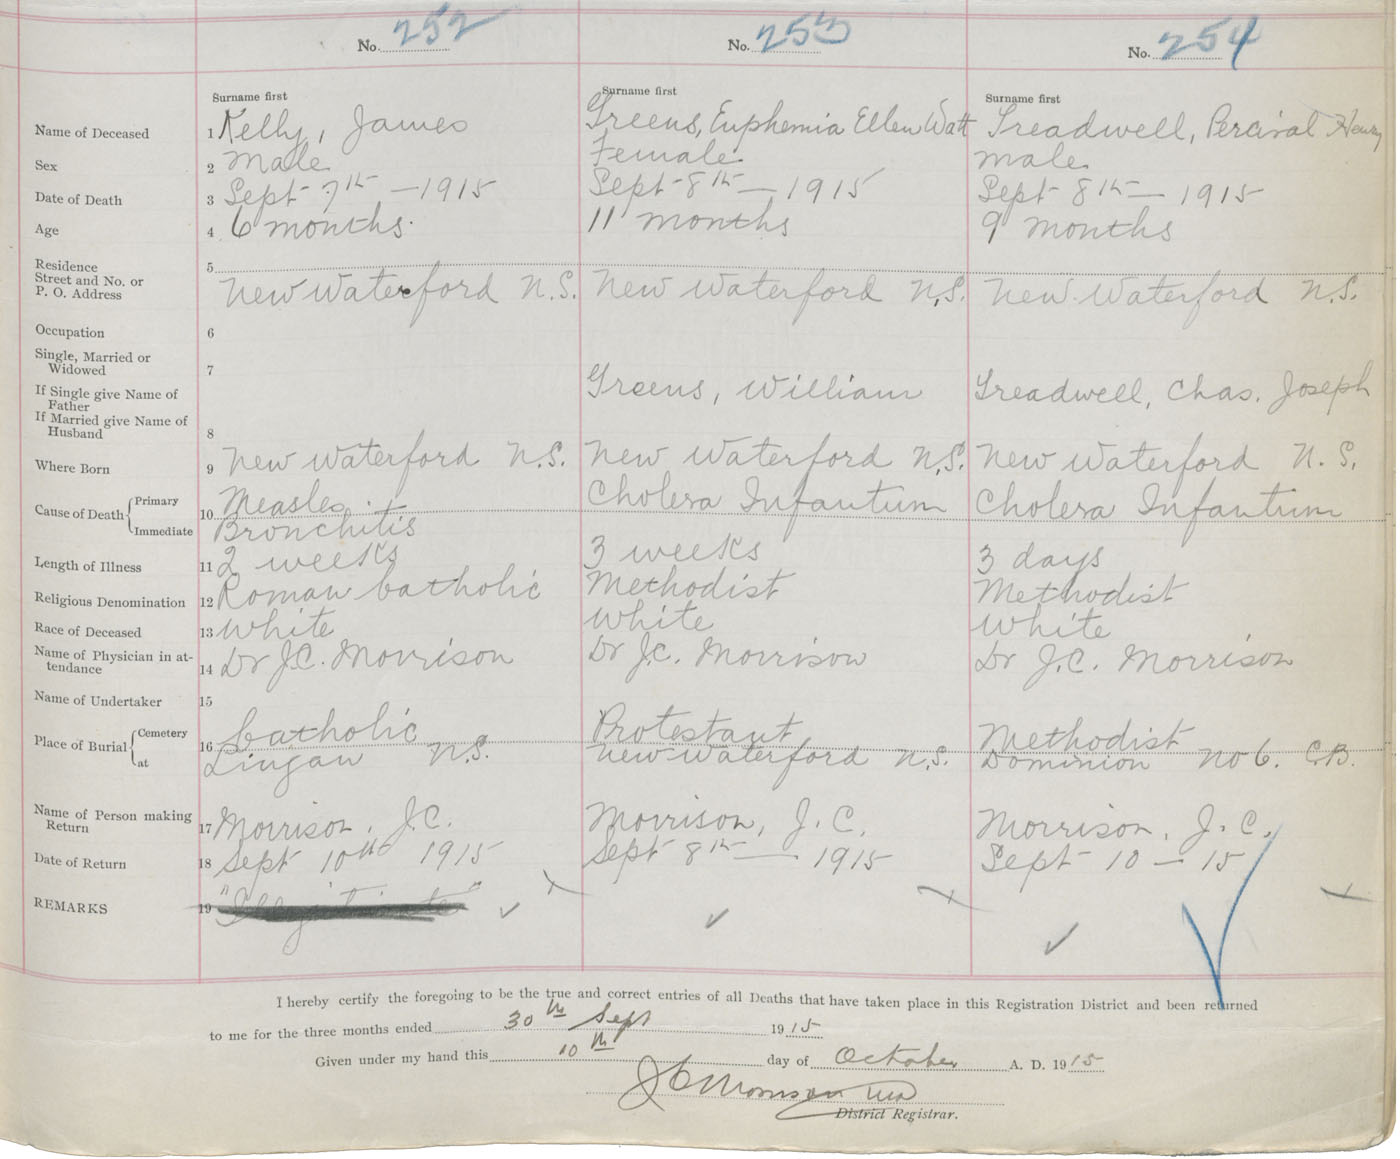 No. 252 No. 253 No. 254
Surname first Surname first Surname first
Name of Deceased 1 Kelly, James Greens, Euphemia Ellen Watt Treadwell, Percival Henry
Sex 2 Male Female Male
Date of Death 3 Sept 7th — 1915 Sept 8th — 1915 Sept 8th — 1915
Age 4 6 months 11 months 9 months
Residence 5
Street and No. or
P. O. Address New Waterford N.S. New Waterford N.S. New Waterford N.S.
Occupation 6
Single, Married or
Widowed 7
If Single give Name of
Father Greens, William Treadwell, Chas. Joseph
If Married give Name of
Husband 8
Where Born 9 New Waterford N.S. New Waterford N.S. New Waterford N.S.
Cause of Death Primary 10 Measles Cholera Infantum Cholera Infantum
Immediate Bronchitis
Length of Illness 11 2 weeks 3 weeks 3 days
Religious Denomination 12 Roman Catholic Methodist Methodist
Race of Deceased 13 White White White
Name of Physician in at-
tendance 14 Dr J.C. Morrison Dr J.C. Morrison Dr J.C. Morrison
Name of Undertaker 15
Place of Burial Cemetery 16 Catholic Protestant Methodist
at Lingan N.S. New Waterford N.S. Dominion No 6. C.B.
Name of Person making
Return 17 Morrison, J.C. Morrison, J.C. Morrison, J.C.
Date of Return 18 Sept 10th 1915 Sept 8th — 1915 Sept 10 — 15
REMARKS 19 "Illegitimate"
I hereby certify the foregoing to be the true and correct entries of all Deaths that have taken place in this Registration District and been returned
to me for the three months ended 30th Sept 1915
Given under my hand this 10th day of October A. D. 1915
J C Morrison MD
District Registrar.